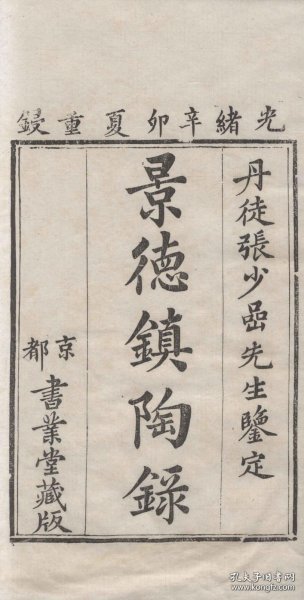 光緒辛卯夏重鋟
丹徒張少嵒先生鑒定
景德鎮陶錄
京都
書業堂藏版
孔夫子旧书网